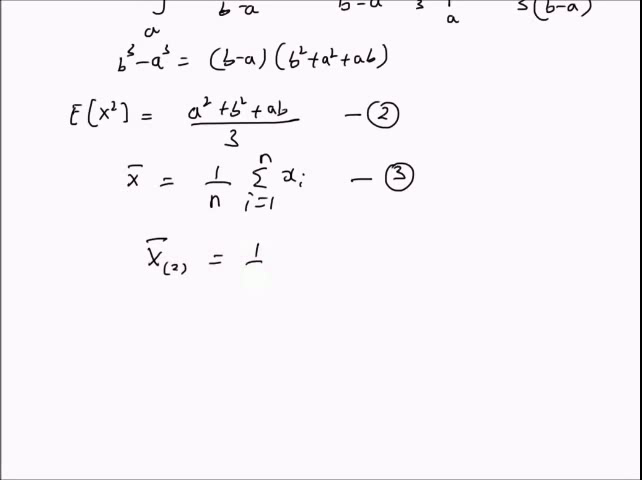 ∫ₐ b-a b-a 3 |ₐ 3(b-a)
b³-a³ = (b-a)(b²+a²+ab)
E[X²] = (a²+b²+ab)/3 — ②
x̄ = 1/n Σᵢ₌₁ⁿ xᵢ — ③
X̄₍₂₎ = 1